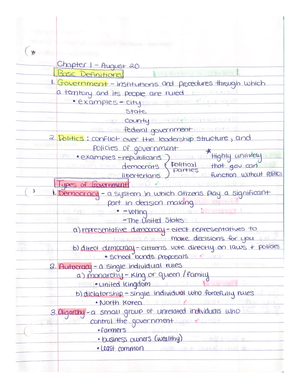 Chapter 1 - August 20
Basic Definitions
1. Government - institutions and procedures through which
a territory and its people are ruled
• examples - city
state
county
federal government
2. Politics: conflict over the leadership, structure, and
policies of government
• examples - republicans
democrats
libertarians
Political
parties
* highly unlikely
that gov can
function without politics
Types of Government
1. Democracy - a system in which citizens play a significant
part in decision making
• - Voting
- The United States
a) representative democracy - elect representatives to
make decisions for you
b) direct democracy - citizens vote directly on laws + policies
• school bonds proposals
2. Autocracy - a single individual rules
a) monarchy - king or queen / family
• United Kingdom
b) dictatorship - single individual who forcefully rules
• North Korea
3. Oligarchy - a small group of unelected individuals who
control the government
• farmers
• business owners (wealthy)
• least common